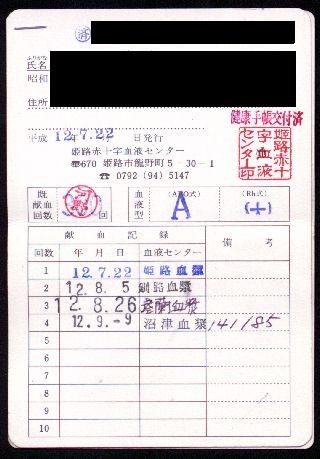 済
ふりがな
氏名
昭和
住所
健康手帳交付済
平成 12.7.22 日発行
姫路赤十字血液センター
〒670 姫路市龍野町5-30-1
☎ 0792(94)5147
姫路赤十字血液センター印
既献血回数 河野 回 血液型 (ABO式) A (Rh式) (+)
献血記録 備考
回数 年月日 血液センター
1 12.7.22 姫路血液
2 12.8.5 釧路血液
3 12.8.26
4 12.9.-9 沼津血液 141/85
5
6
7
8
9
10